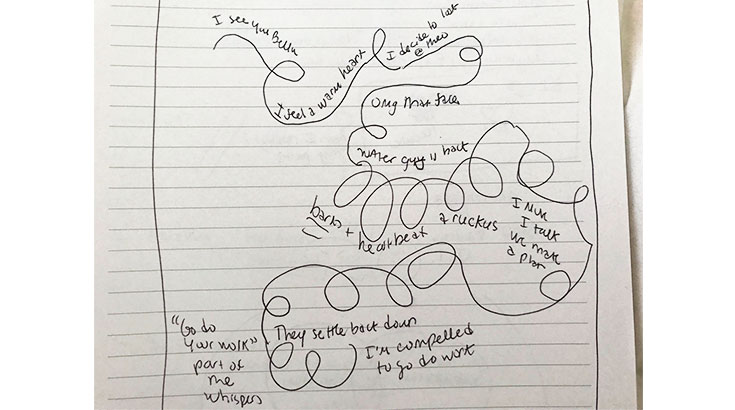 I see you Bella
I feel a warm heart
I decide to look
@ Theo
Omg that face
Water guy is back
barks +
heartbeat
a ruckus
I
I talk
we make
a plan
They settle back down
I'm compelled
to go do work
"Go do
your work"
part of
me
whispers